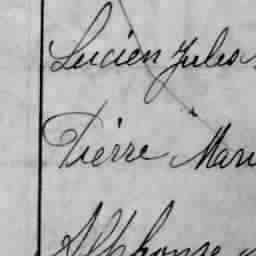 Lucien Jules
Pierre Mari
Alphonse